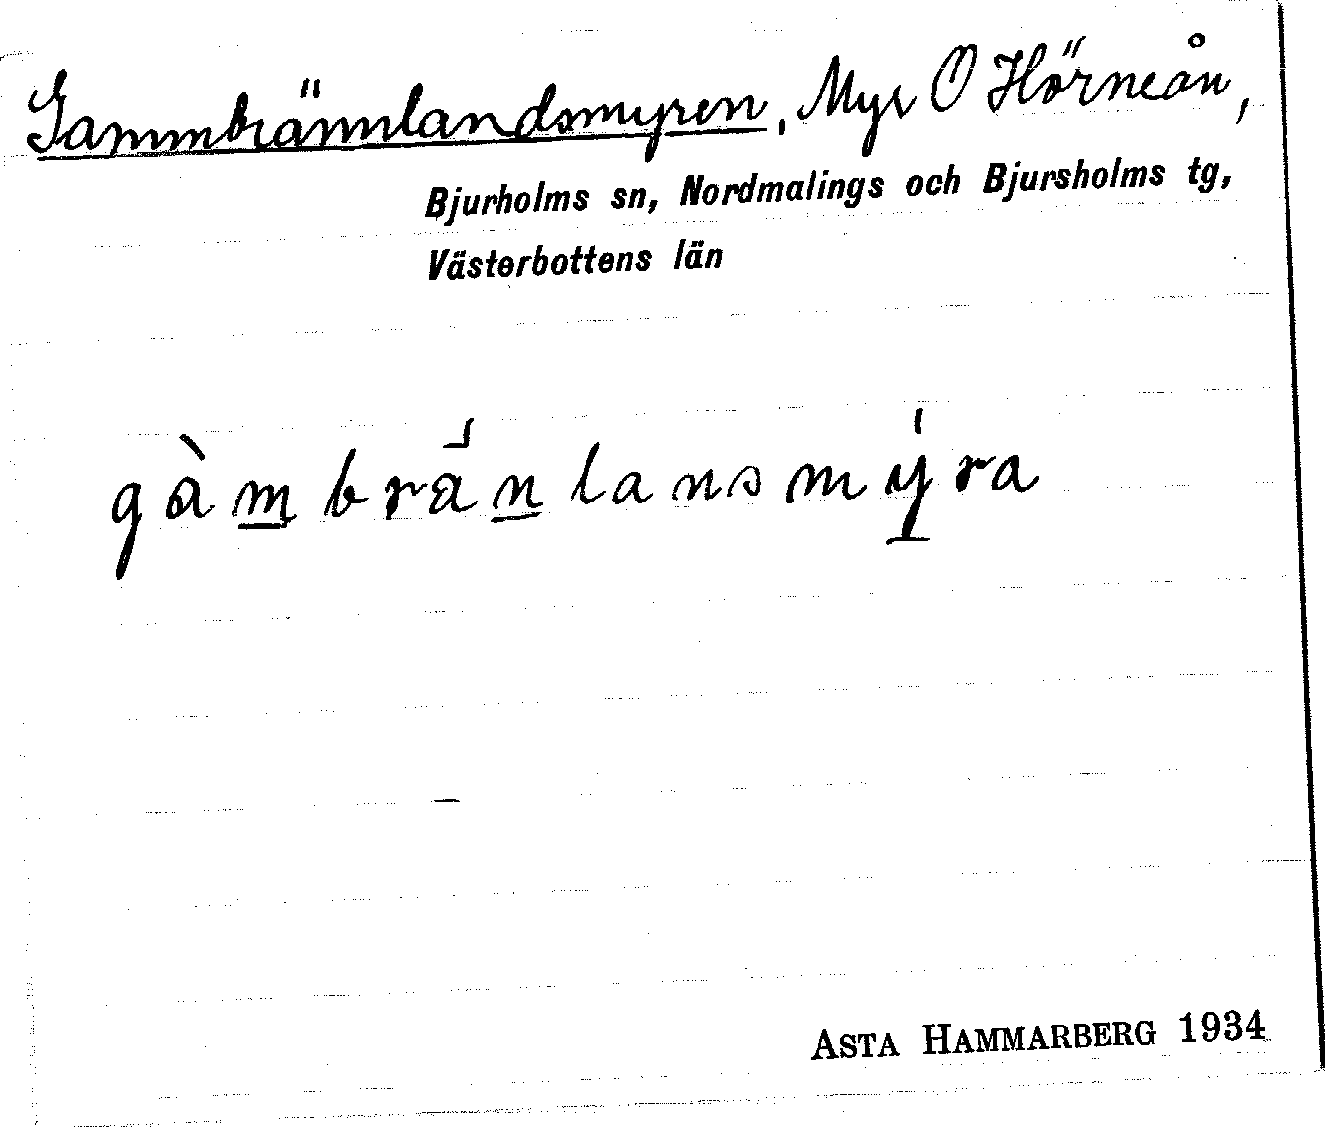 Gammbrännlandsmyren, Myr O Hörneån,
Bjurholms sn, Nordmalings och Bjursholms tg,
Västerbottens län
gàmbränlansmýra
ASTA HAMMARBERG 1934